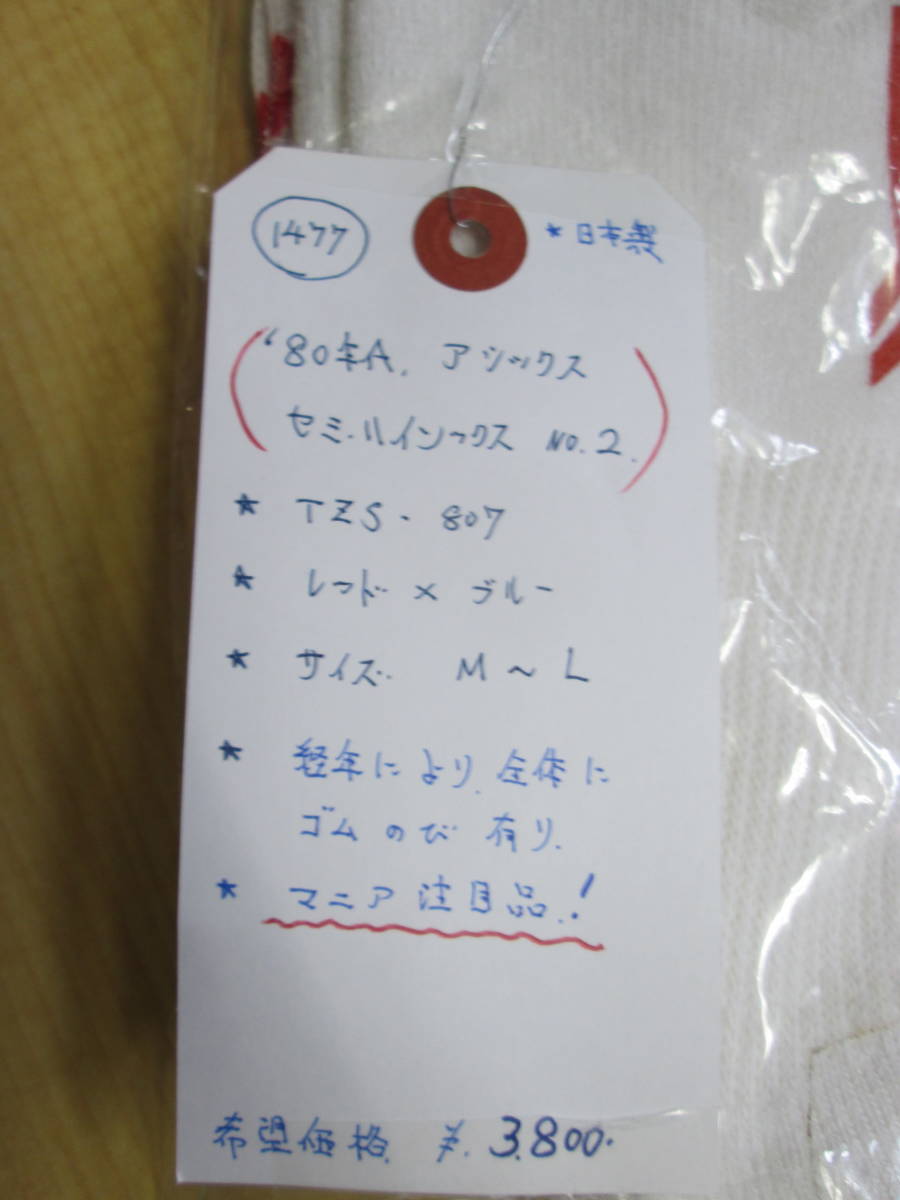 1477
*日本製
'80年A. アシックス
セミ.ハイソックス NO.2.
* TZS-807
* レッド×ブルー
* サイズ. M~L
* 経年により.全体に
ゴムのび有り.
* マニア注目品.!
希望価格 ¥.3.800.